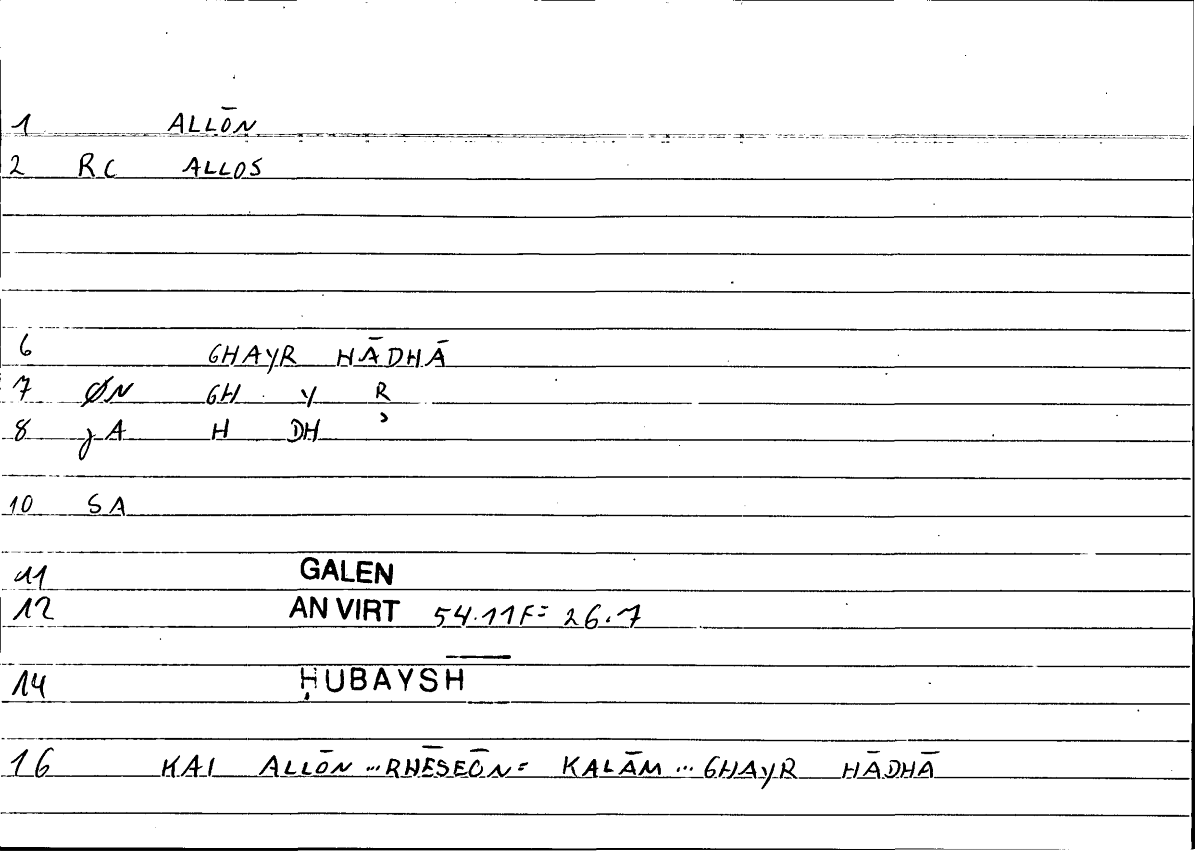 1 ALLŌN
2 RC ALLOS
6 GHAYR HĀDHĀ
7 ØN GH Y R
8 JA H DH ʾ
10 SA
11 GALEN
12 AN VIRT 54.11F= 26.7
14 ḤUBAYSH
16 KAI ALLŌN ... RHĒSEŌN= KALĀM ... GHAYR HĀDHĀ